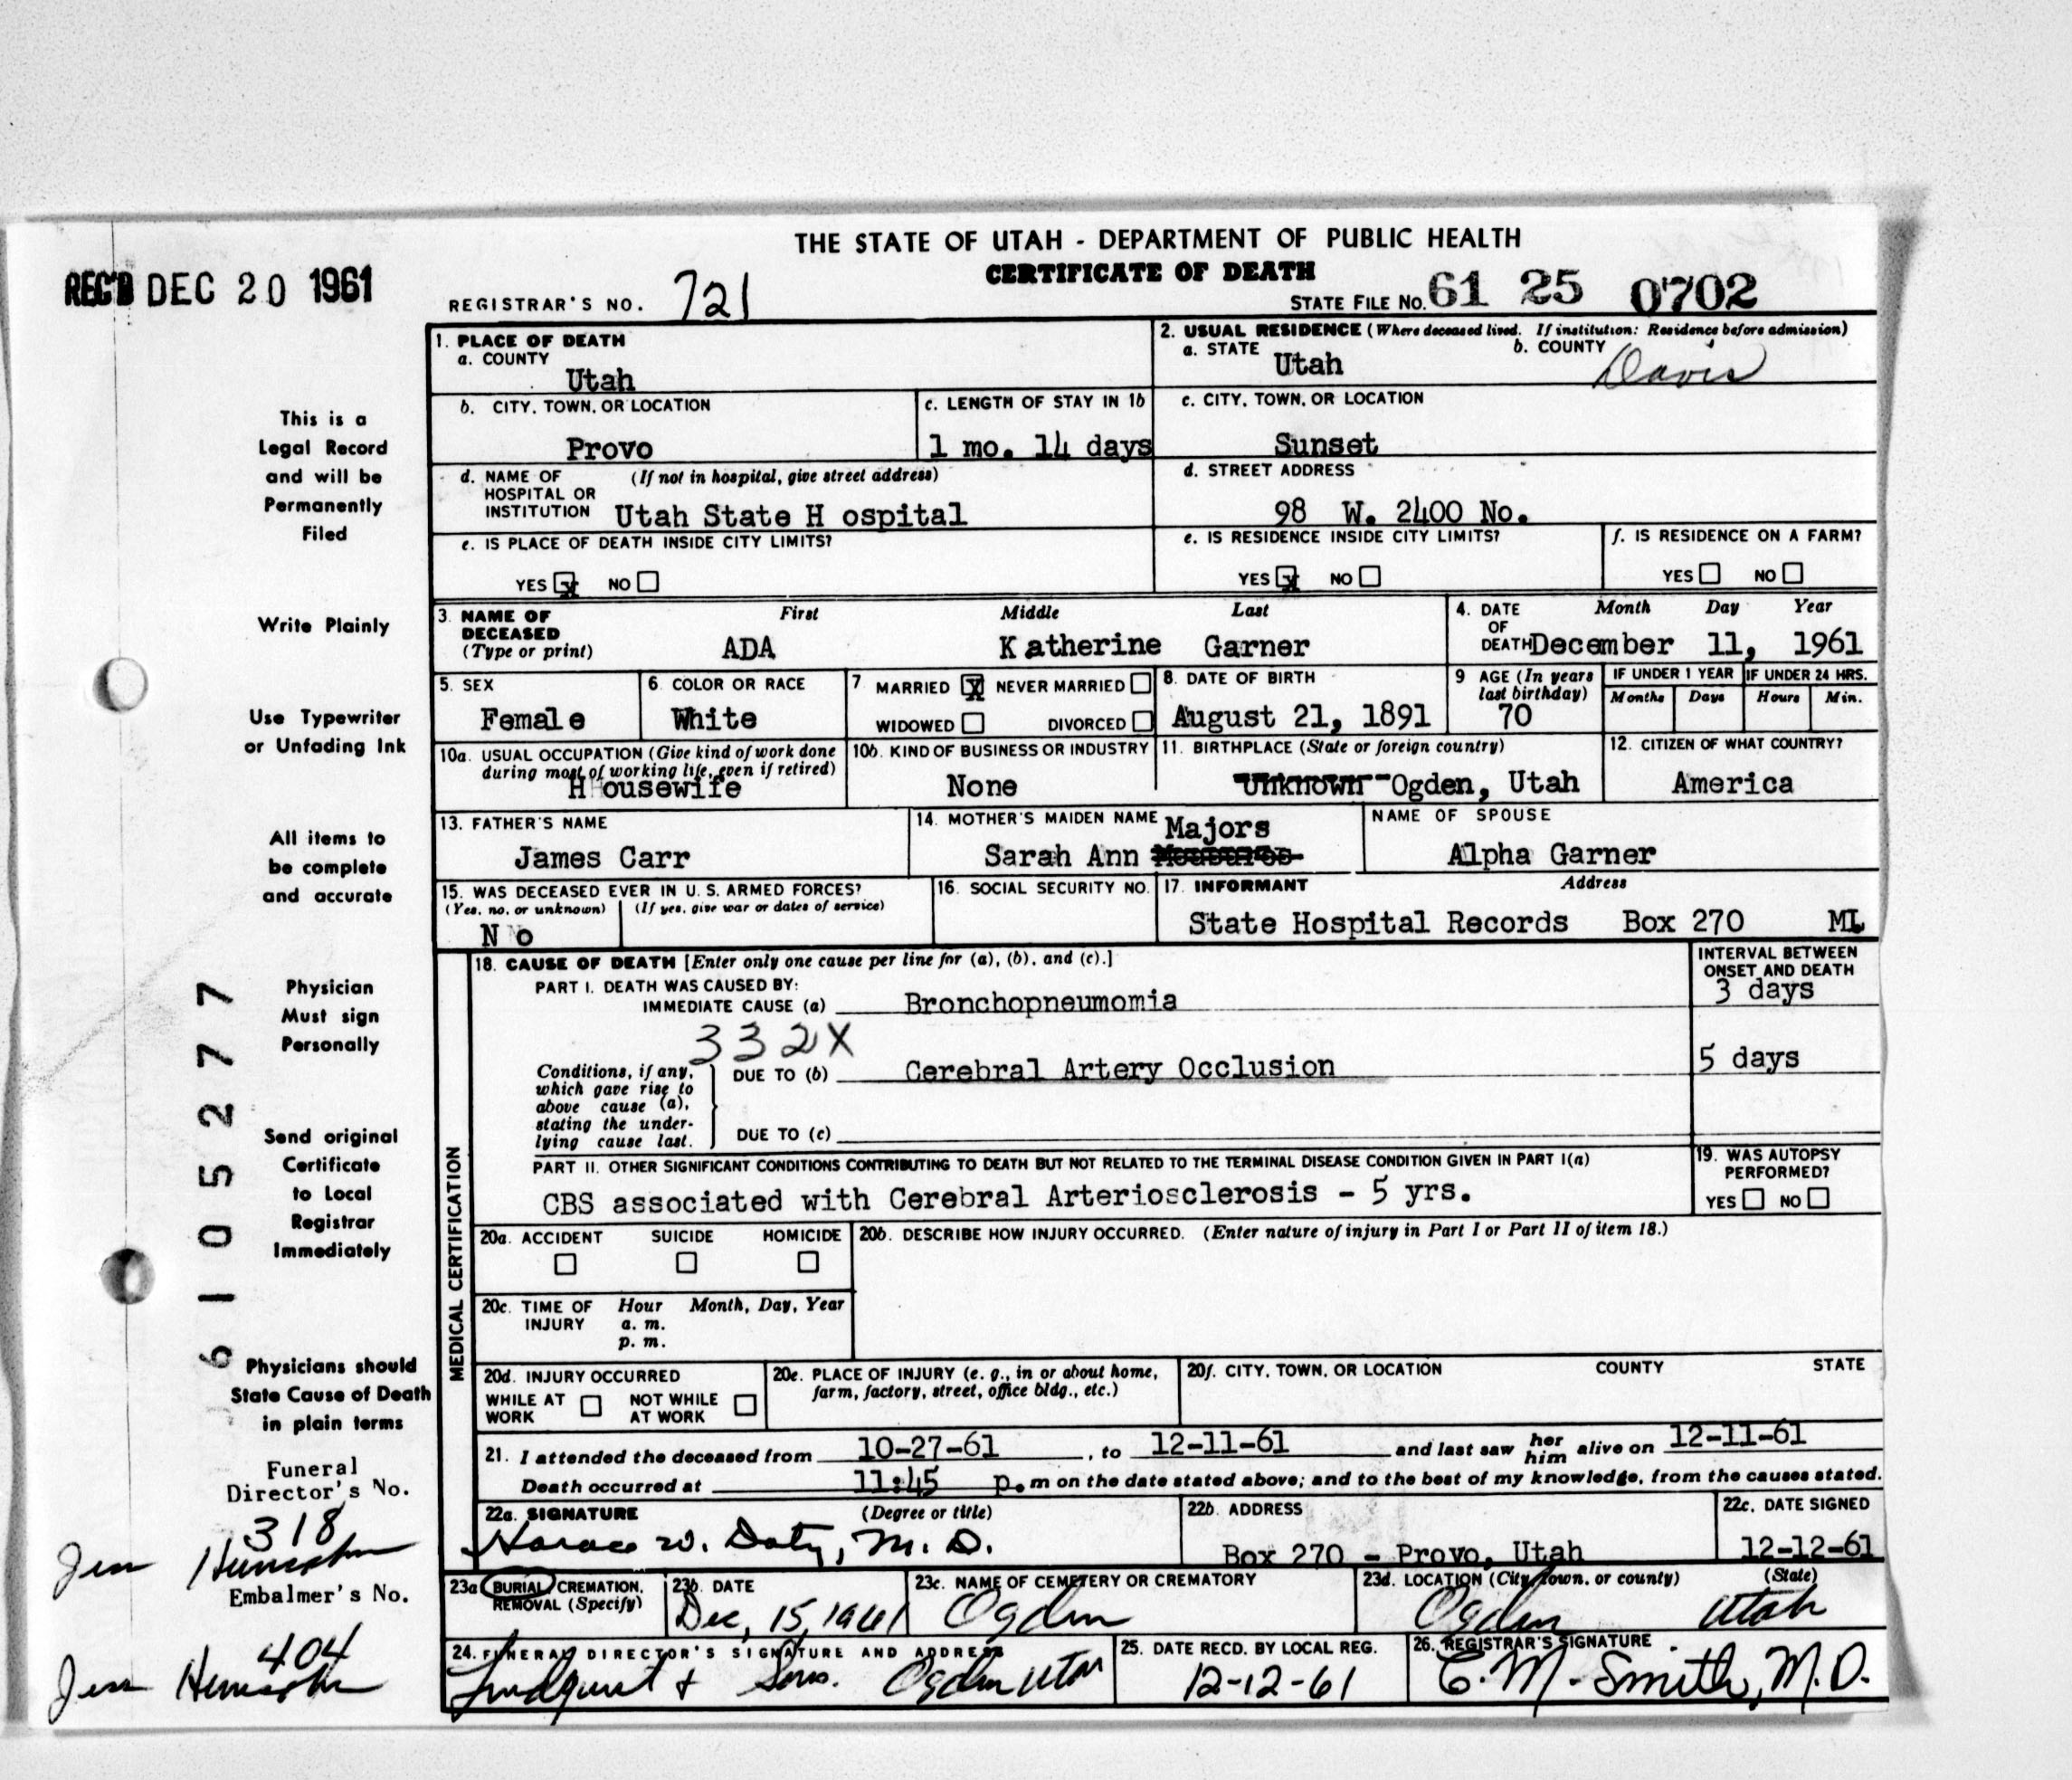 THE STATE OF UTAH - DEPARTMENT OF PUBLIC HEALTH
CERTIFICATE OF DEATH
REC'D DEC 20 1961
REGISTRAR'S NO. 721
STATE FILE NO. 61 25 0702
This is a
Legal Record
and will be
Permanently
Filed
Write Plainly
Use Typewriter
or Unfading Ink
All items to
be complete
and accurate
Physician
Must sign
Personally
Send original
Certificate
to Local
Registrar
Immediately
Physicians should
State Cause of Death
in plain terms
6105277
Funeral
Director's No.
318
Embalmer's No.
404
1. PLACE OF DEATH
a. COUNTY
Utah
2. USUAL RESIDENCE (Where deceased lived. If institution: Residence before admission)
a. STATE Utah b. COUNTY Davis
b. CITY, TOWN, OR LOCATION
Provo
c. LENGTH OF STAY IN 1b
1 mo. 14 days
c. CITY, TOWN, OR LOCATION
Sunset
d. NAME OF (If not in hospital, give street address)
HOSPITAL OR
INSTITUTION Utah State H ospital
d. STREET ADDRESS
98 W. 2400 No.
e. IS PLACE OF DEATH INSIDE CITY LIMITS?
YES x NO
e. IS RESIDENCE INSIDE CITY LIMITS?
YES x NO
f. IS RESIDENCE ON A FARM?
YES NO
3. NAME OF First Middle Last
DECEASED
(Type or print) ADA Katherine Garner
4. DATE Month Day Year
OF
DEATH December 11, 1961
5. SEX
Female
6. COLOR OR RACE
White
7 MARRIED X NEVER MARRIED
WIDOWED DIVORCED
8. DATE OF BIRTH
August 21, 1891
9 AGE (In years
last birthday)
70
IF UNDER 1 YEAR IF UNDER 24 HRS.
Months Days Hours Min.
10a. USUAL OCCUPATION (Give kind of work done
during most of working life, even if retired)
H ousewife
10b. KIND OF BUSINESS OR INDUSTRY
None
11. BIRTHPLACE (State or foreign country)
Unknown Ogden, Utah
12. CITIZEN OF WHAT COUNTRY?
America
13. FATHER'S NAME
James Carr
14. MOTHER'S MAIDEN NAME Majors
Sarah Ann
NAME OF SPOUSE
Alpha Garner
15. WAS DECEASED EVER IN U.S. ARMED FORCES?
(Yes, no, or unknown) (If yes, give war or dates of service)
N o
16. SOCIAL SECURITY NO.
17. INFORMANT Address
State Hospital Records Box 270 ML
MEDICAL CERTIFICATION
18. CAUSE OF DEATH [Enter only one cause per line for (a), (b), and (c).]
INTERVAL BETWEEN
ONSET AND DEATH
PART I. DEATH WAS CAUSED BY:
IMMEDIATE CAUSE (a) Bronchopneumomia 3 days
332X
Conditions, if any,
which gave rise to
above cause (a),
stating the under-
lying cause last.
DUE TO (b) Cerebral Artery Occlusion 5 days
DUE TO (c)
PART II. OTHER SIGNIFICANT CONDITIONS CONTRIBUTING TO DEATH BUT NOT RELATED TO THE TERMINAL DISEASE CONDITION GIVEN IN PART I(a)
CBS associated with Cerebral Arteriosclerosis - 5 yrs.
19. WAS AUTOPSY
PERFORMED?
YES NO
20a. ACCIDENT SUICIDE HOMICIDE
20b. DESCRIBE HOW INJURY OCCURRED. (Enter nature of injury in Part I or Part II of item 18.)
20c. TIME OF Hour Month, Day, Year
INJURY a. m.
p. m.
20d. INJURY OCCURRED
WHILE AT NOT WHILE
WORK AT WORK
20e. PLACE OF INJURY (e. g., in or about home,
farm, factory, street, office bldg., etc.)
20f. CITY, TOWN, OR LOCATION COUNTY STATE
21. I attended the deceased from 10-27-61, to 12-11-61 and last saw her him alive on 12-11-61
Death occurred at 11:45 p.m on the date stated above; and to the best of my knowledge, from the causes stated.
22a. SIGNATURE (Degree or title)
Horace W. Doty, M. D.
22b. ADDRESS
Box 270 - Provo, Utah
22c. DATE SIGNED
12-12-61
23a BURIAL, CREMATION,
REMOVAL (Specify)
23b. DATE
Dec, 15, 1961
23c. NAME OF CEMETERY OR CREMATORY
Ogden
23d. LOCATION (City, town, or county) (State)
Ogden Utah
24. FUNERAL DIRECTOR'S SIGNATURE AND ADDRESS
Lindquist & Sons. Ogden Utah
25. DATE RECD. BY LOCAL REG.
12-12-61
26. REGISTRAR'S SIGNATURE
C. M. Smith, M.D.